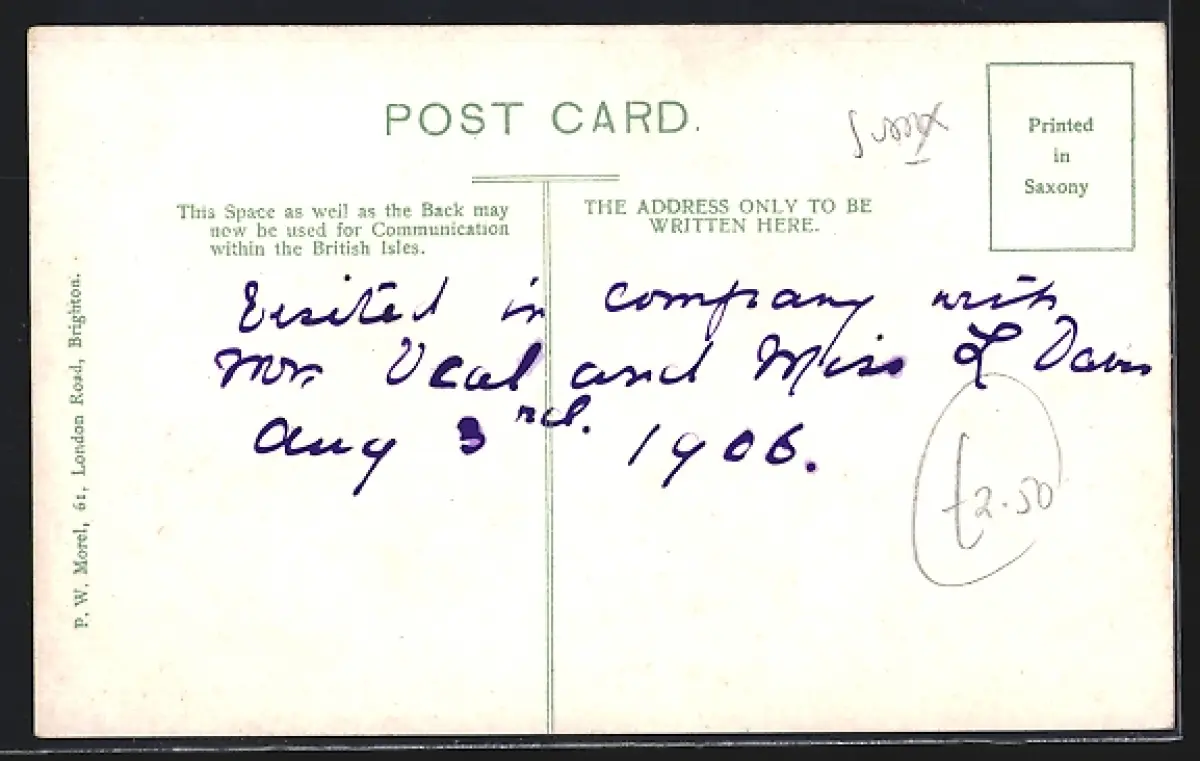 POST CARD.
Printed
in
Saxony
This Space as well as the Back may
now be used for Communication
within the British Isles.
THE ADDRESS ONLY TO BE
WRITTEN HERE.
Visited in company with
Mr. Veal and Miss L Davis
Aug 3rd. 1906.
£2.50
P. W. Morel, 61, London Road, Brighton.